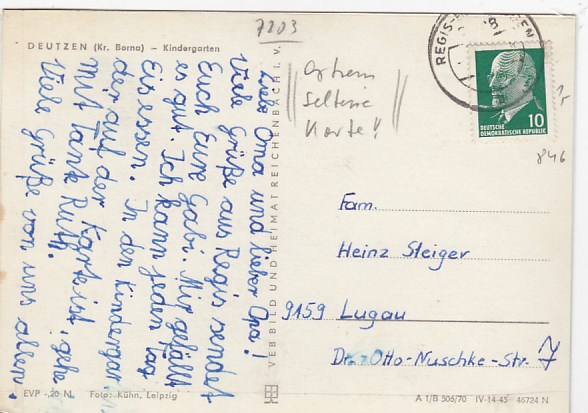 7203
DEUTZEN (Kr. Borna) – Kindergarten
Liebe Oma und lieber Opa!
Viele Grüße aus Regis sendet
Euch Eure Gabi. Mir gefällt
es gut. Ich kann jeden Tag
Eis essen. In den Kindergarten
der auf der Karte ist, gehe
mit Tante Ruth.
Viele Grüße von uns allen.
VEB BILD UND HEIMAT REICHENBACH I. V.
extrem
seltene
Karte!!
REGIS-
10
DEUTSCHE
DEMOKRATISCHE REPUBLIK
846
Fam.
Heinz Steiger
9159 Lugau
Dr.-Otto-Nuschke-Str. 7
EVP -,20 N
Foto: Kühn, Leipzig
A 1/B 506/70 IV-14-45 46724 N